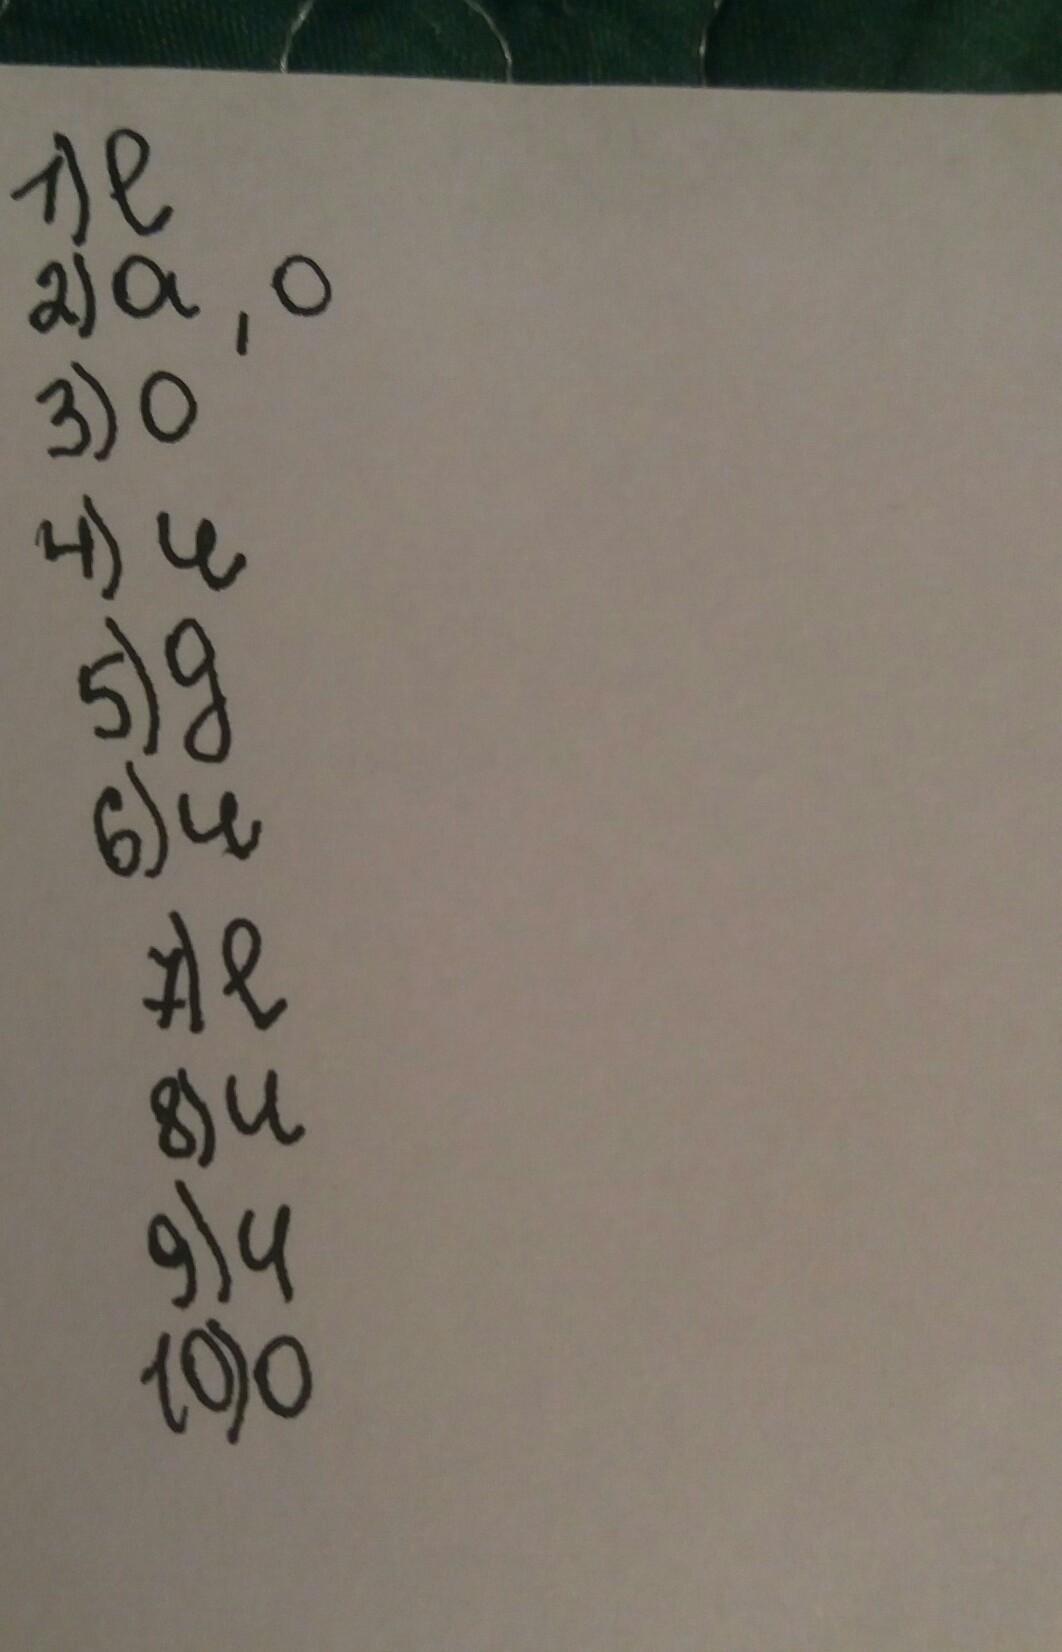 1) е
2) а, о
3) о
4) и
5) д
6) и
7) е
8) и
9) ч
10) о